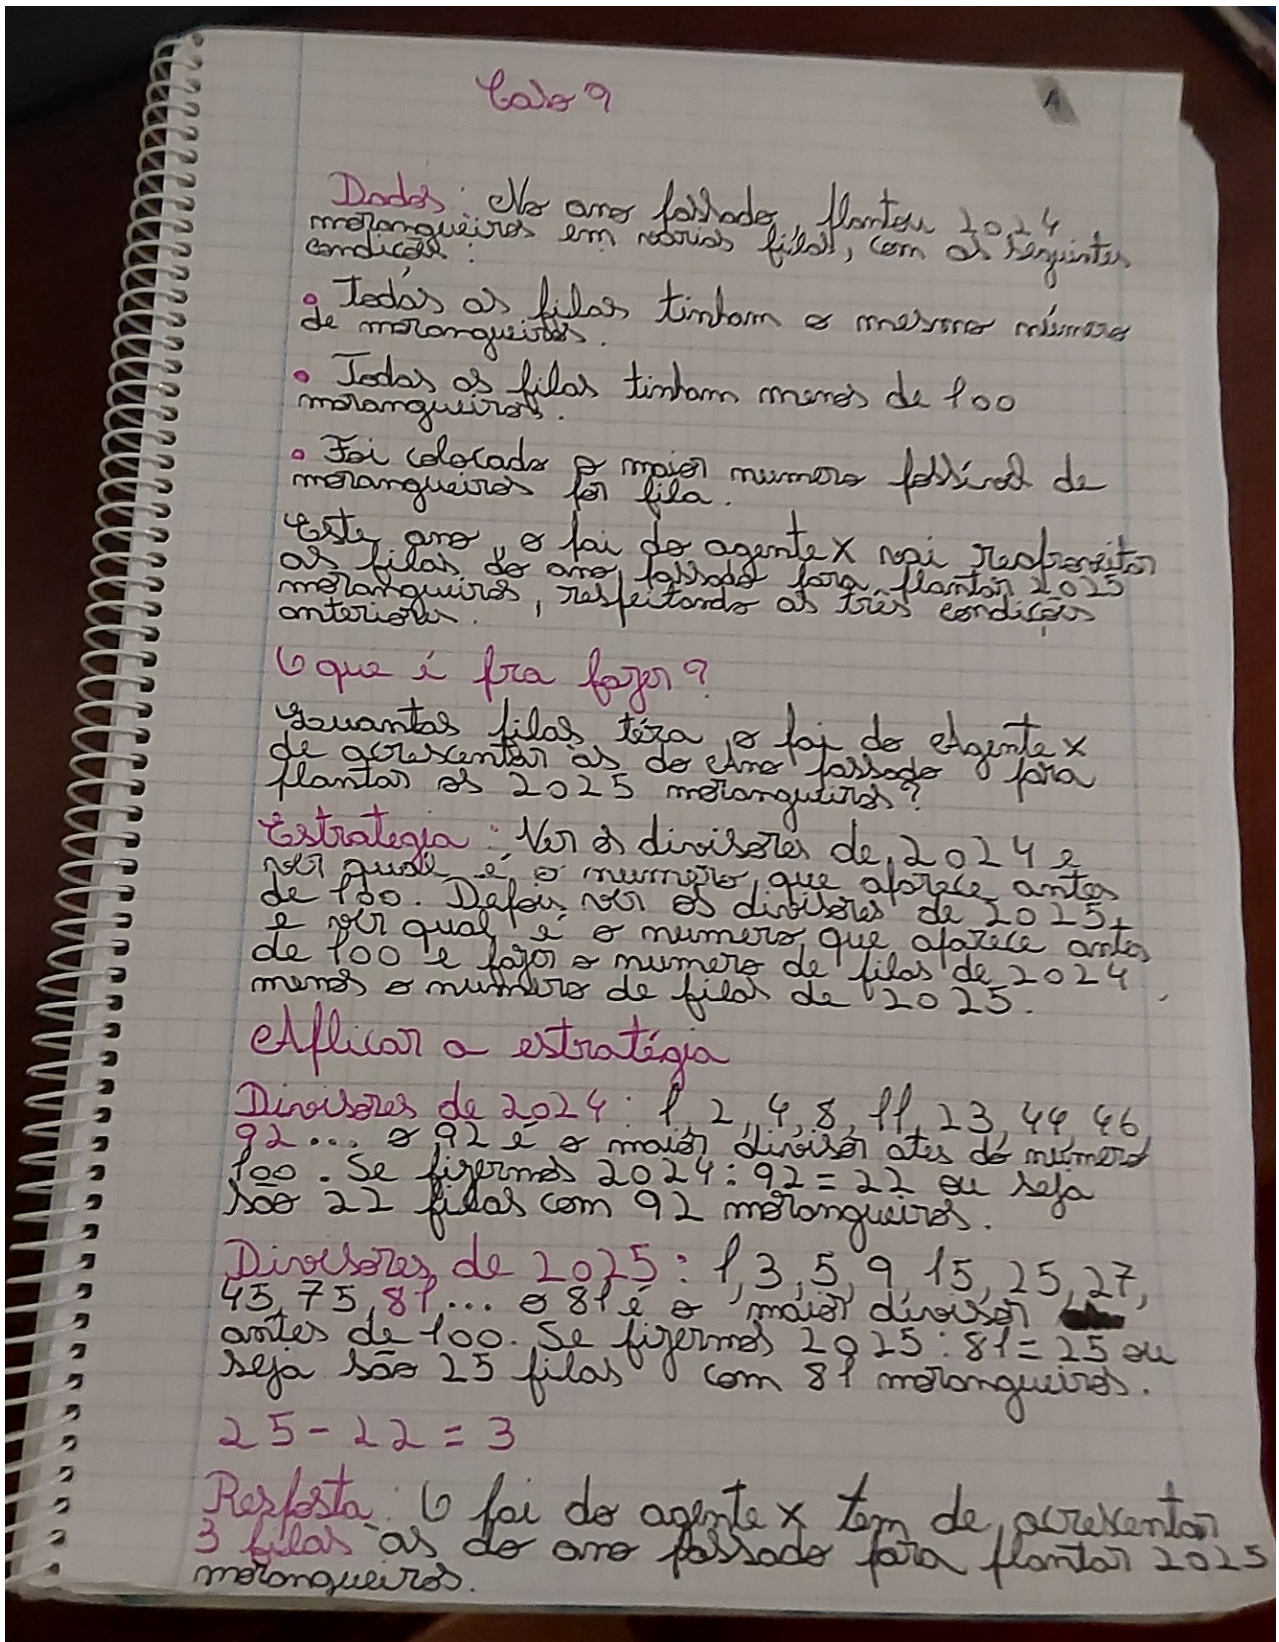 Caso 9
1
Dados: No ano passado, plantou 2024
morangueiros em várias filas, com as seguintes
condições:
• Todas as filas tinham o mesmo número
de morangueiros.
• Todas as filas tinham menos de 100
morangueiros.
• Foi colocado o maior numero possível de
morangueiros por fila.
Este ano, o pai do agente X vai reaproveitar
as filas do ano passado para plantar 2025
morangueiros, respeitando as três condições
anteriores.
O que é pra fazer?
Quantas filas téra o pai do Agente X
de acrescentar às do Ano passado para
plantar os 2025 morangueiros?
Estrategia: Ver os divisores de 2024 e
ver qual é o numero que aparece antes
de 100. Depois ver os divisores de 2025
e ver qual é o numero que aparece antes
de 100 e fazer o numero de filas de 2024
menos o numero de filas de 2025.
Aplicar a estratégia
Divisores de 2024: 1, 2, 4, 8, 11, 23, 44, 46,
92... o 92 é o maior divisor ates do número
100. Se fizermos 2024:92=22 ou seja
são 22 filas com 92 morangueiros.
Divisores de 2025: 1, 3, 5, 9, 15, 25, 27,
45, 75, 81,... o 81 é o maior divisor
antes de 100. Se fizermos 2025:81=25 ou
seja são 25 filas com 81 morangueiros.
25-22=3
Resposta: O pai do agente X tem de acrescentar
3 filas às do ano passado para plantar 2025
morangueiros.